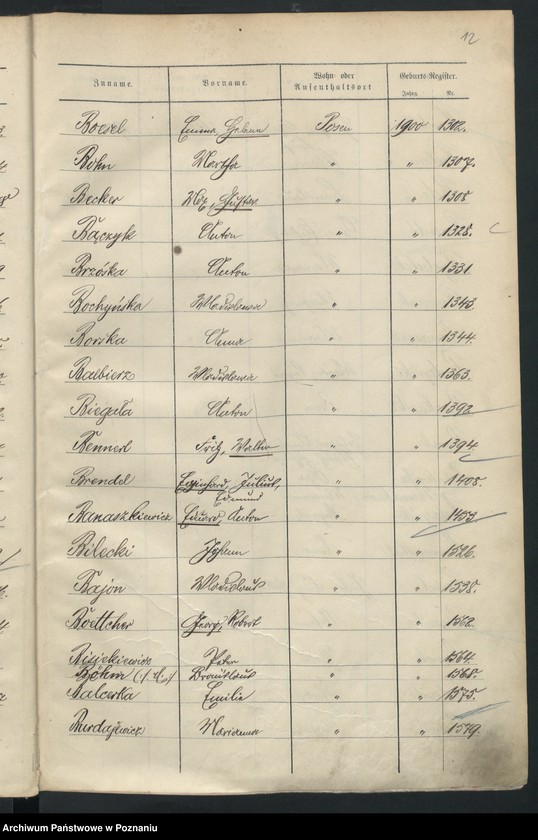 12
Zuname. Vorname. Wohn- oder Aufenthaltsort Geburts-Register.
Jahrg. Nr.
Boesel Emma, Helene Posen 1900 1302.
Böhn Martha " " 1307.
Becker Gustav " " 1308
Bączyk Anton " " 1328.
Brzóska Anton " " 1331.
Bochyńska Wladislawa " " 1343.
Borska Anna " " 1344.
Balbierz Wladislawa " " 1363.
Biegała Anton " " 1392
Bennert Fritz, Walter " " 1394
Brendel Eginhard, Julius, " " 1408.
Edmund
Banaszkiewicz Eduard, Anton " " 1453.
Bilecki Johann " " 1526.
Bajon Wladislaus " " 1538.
Boettcher Georg, Robert " " 1562.
Peter " " 1564.
Böhm Bronislaus " " 1568.
Balcerka Emilie " " 1575.
Burdajewicz Marianna " " 1579.
Archiwum Państwowe w Poznaniu